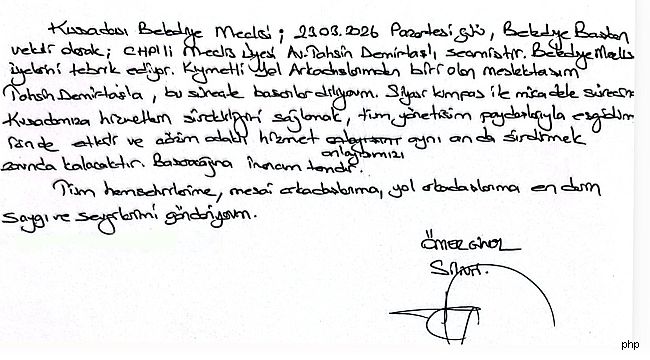 Kuşadası Belediye Meclisi; 23.03.2026 Pazartesi günü, Belediye Başkan
vekili olarak; CHP'li Meclis üyesi Av. Tahsin Demirtaş'ı, seçmiştir. Belediye Meclis
üyelerini tebrik ediyor. Kıymetli Yol Arkadaşlarımdan biri olan meslektaşım
Tahsin Demirtaş'a, bu süreçte başarılar diliyorum. Siyasi kumpas ile mücadele sürecimiz
Kuşadamıza hizmetlerin sürekliliğini sağlamak, tüm yönetişim paydaşlarıyla eşgüdüm
içinde etkili ve çözüm odaklı hizmet anlayışımızı aynı anda sürdürmek
zorunda kalacaktır. Başaracağına inancım tamdır.
Tüm hemşehrilerime, mesai arkadaşlarıma, yol arkadaşlarıma en derin
saygı ve sevgilerimi gönderiyorum.
ÖMER GÜNEL
Silivri.
php